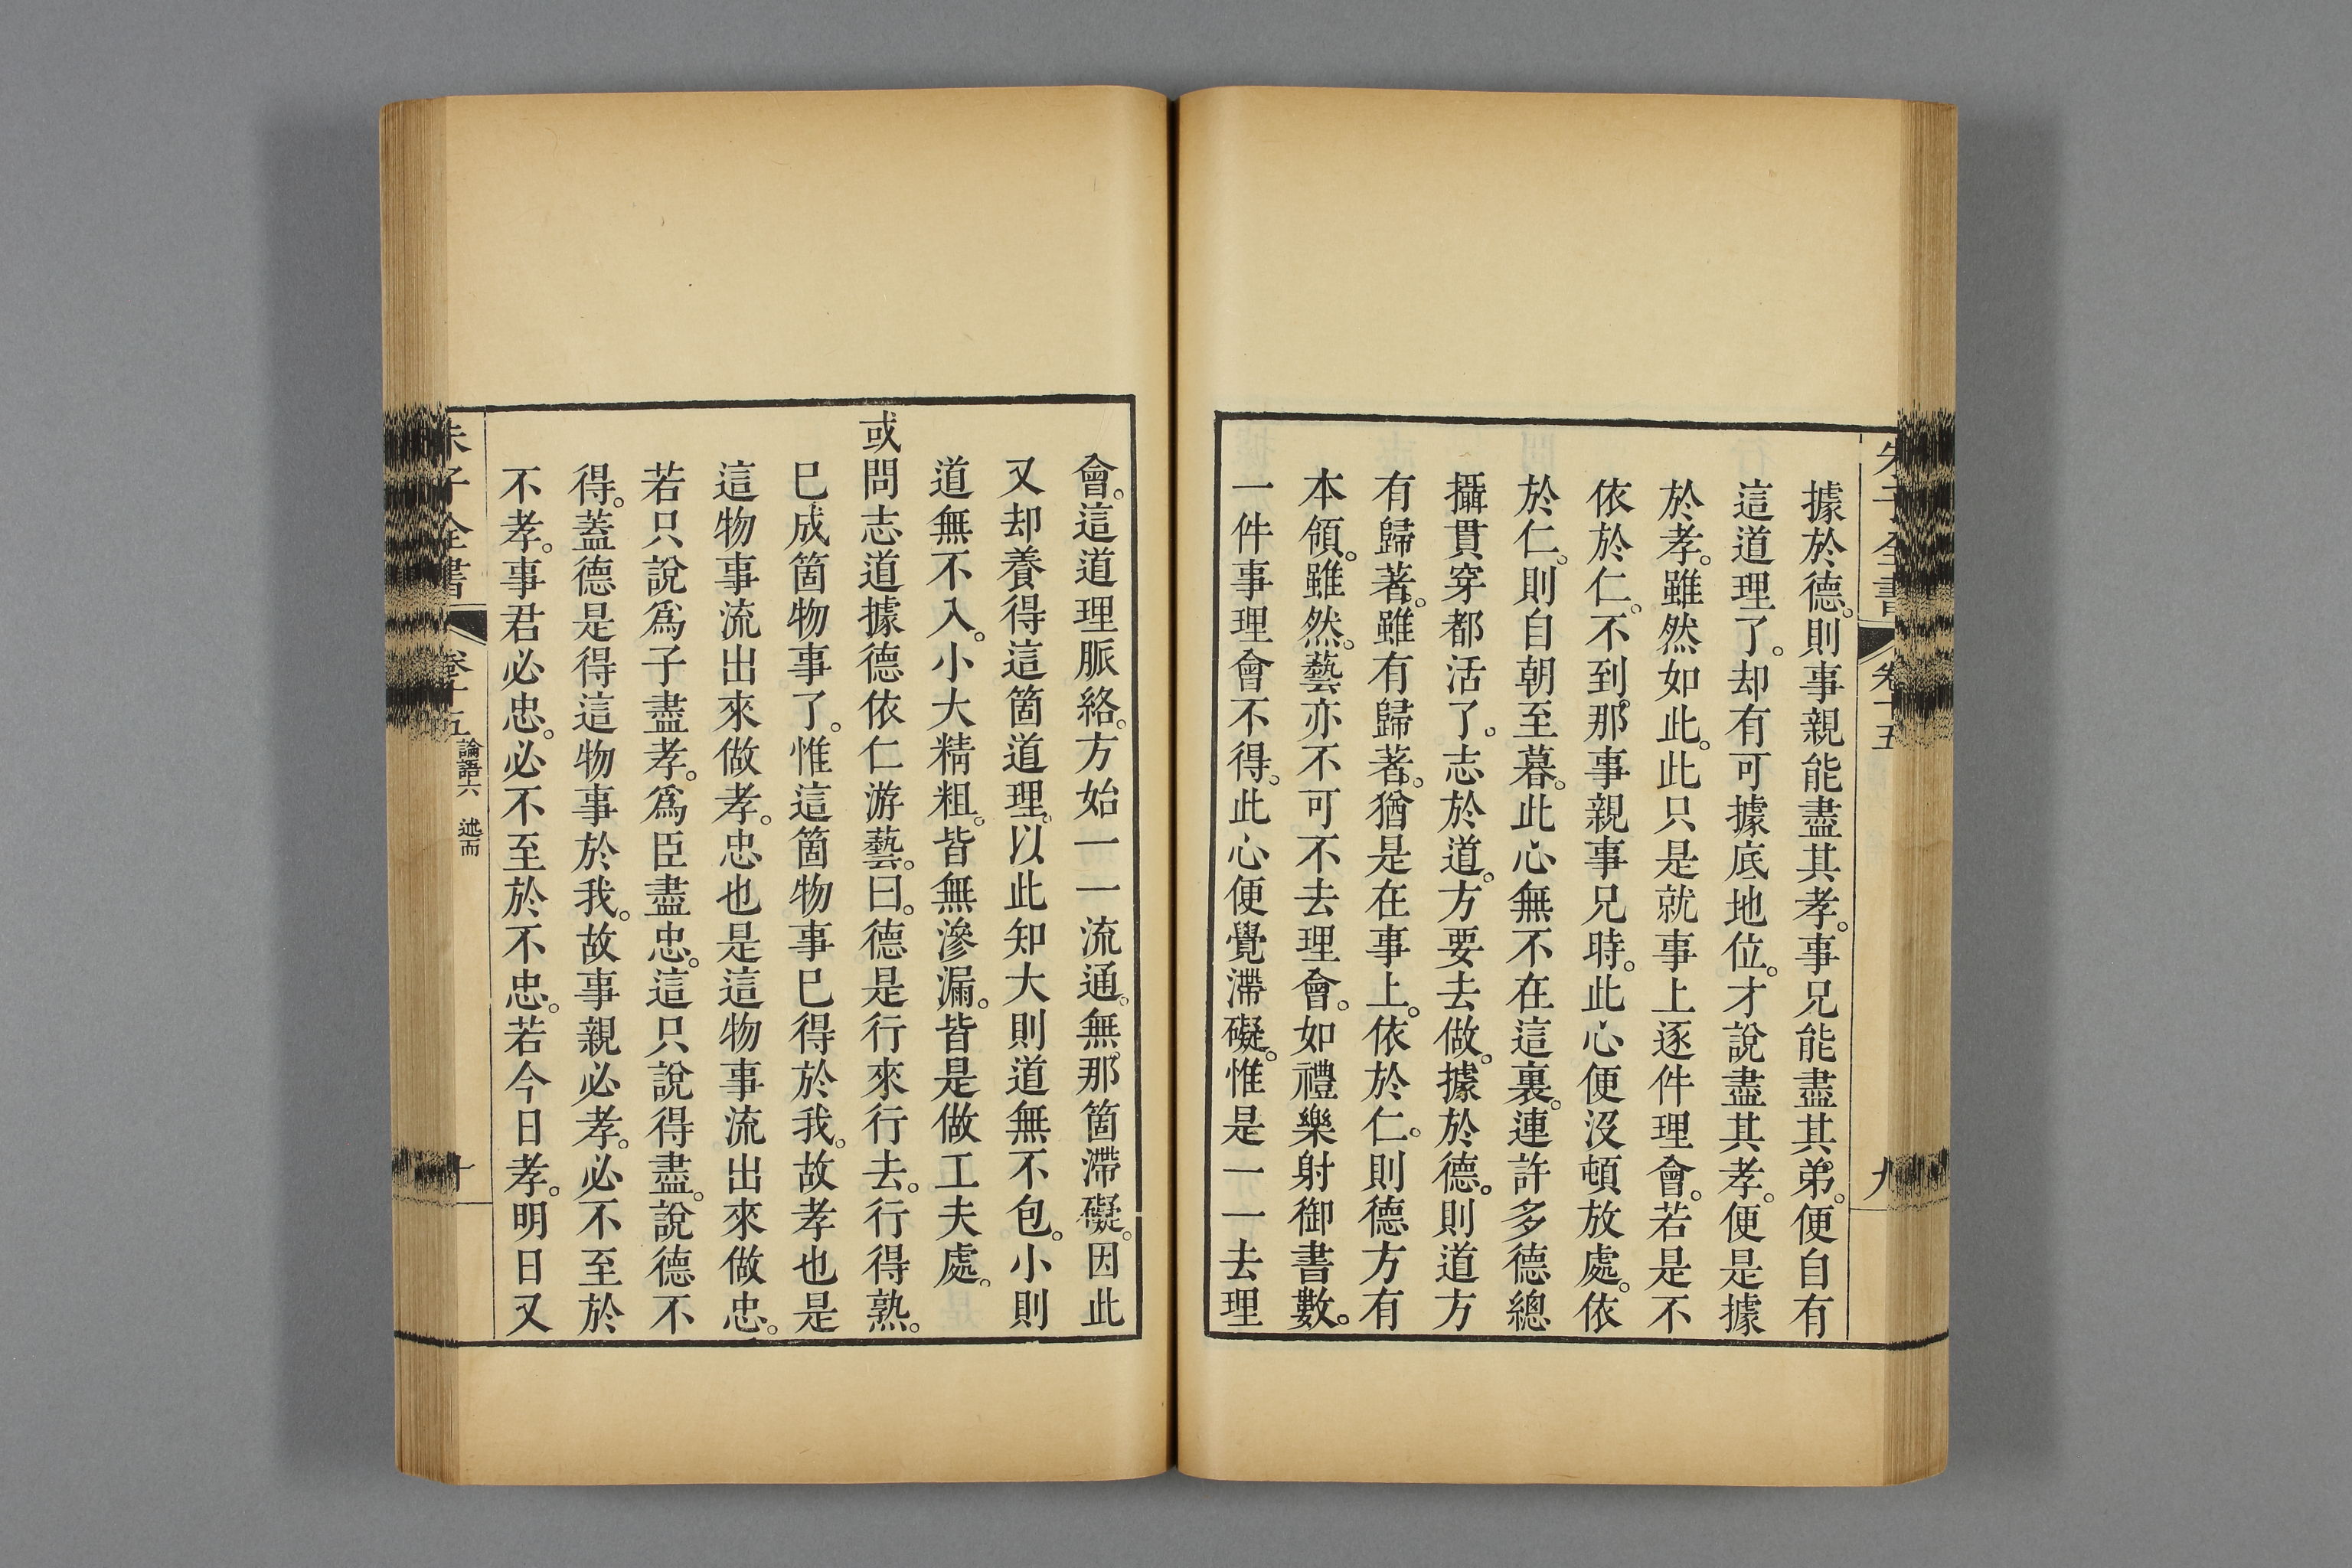 朱子全書
卷十五
九
據於德。則事親能盡其孝。事兄能盡其弟。便自有
這道理了。却有可據底地位。才說盡其孝。便是據
於孝。雖然如此。此只是就事上逐件理會。若是不
依於仁。不到那事親事兄時。此心便沒頓放處。依
於仁。則自朝至暮。此心無不在這裏。連許多德總
攝貫穿都活了。志於道。方要去做。據於德。則道方
有歸著。雖有歸著。猶是在事上。依於仁。則德方有
本領。雖然。藝亦不可不去理會。如禮樂射御書數。
一件事理會不得。此心便覺滯礙。惟是一一去理
會。這道理脈絡。方始一一流通。無那箇滯礙。因此
又却養得這箇道理。以此知大則道無不包。小則
道無不入。小大精粗。皆無滲漏。皆是做工夫處。
或問志道據德依仁游藝。曰。德是行來行去。行得熟。
已成箇物事了。惟這箇物事已得於我。故孝也是
這物事流出來做孝。忠也是這物事流出來做忠。
若只說爲子盡孝。爲臣盡忠。這只說得盡。說德不
得。蓋德是得這物事於我。故事親必孝。必不至於
不孝。事君必忠。必不至於不忠。若今日孝。明日又
朱子全書
卷十五
論語六 述而
十